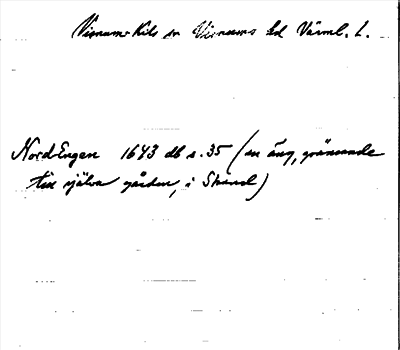 Visnums-Kils sn Visnums hd Värml. l.
Nord-Engen 1643 db s. 35 (en äng, gränsande
till själva gården, i Strand)